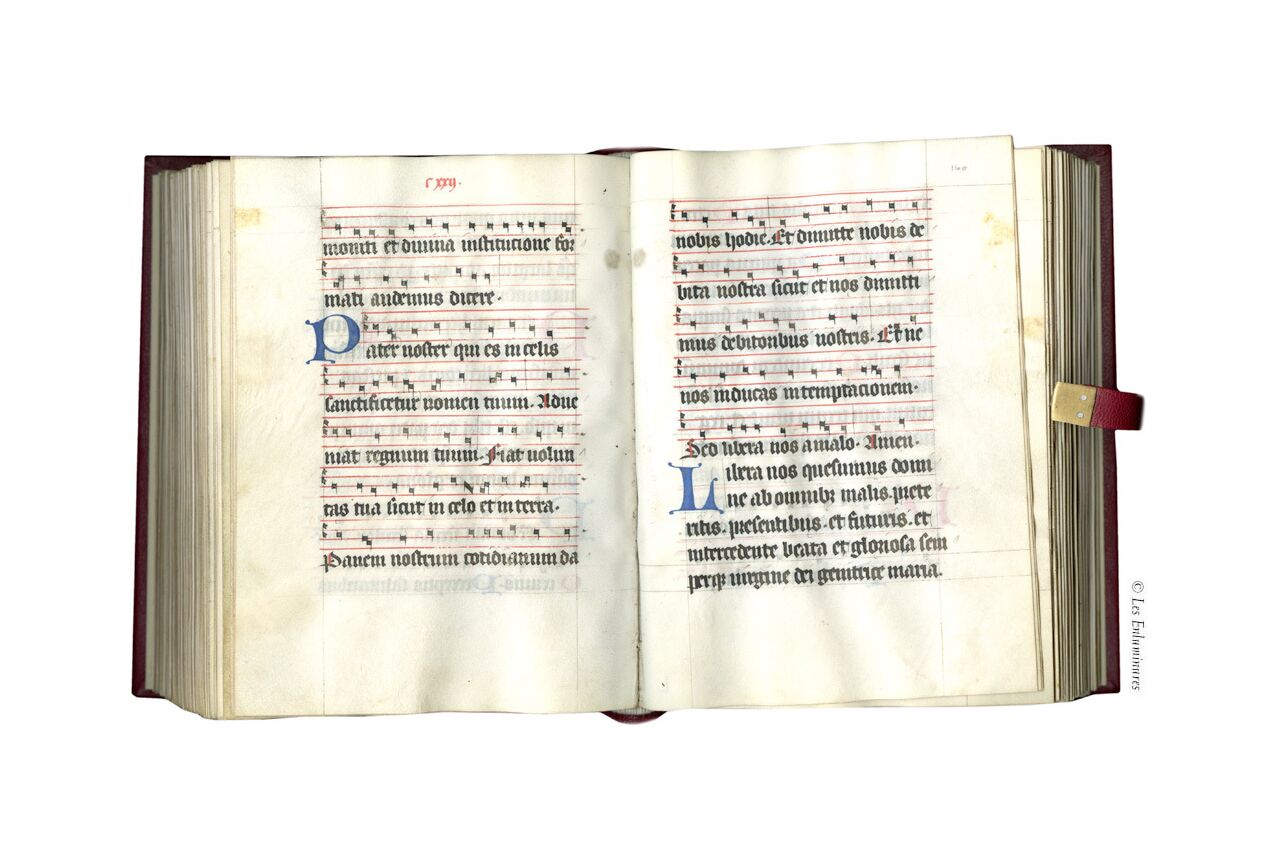 C xxij.
moniti et diuina institucione for
mati audemus dicere.
Pater noster qui es in celis
sanctificetur nomen tuum. Adue
niat regnum tuum. Fiat uolun
tas tua sicut in celo et in terra.
Panem nostrum cotidianum da
nobis hodie. Et dimitte nobis de
bita nostra sicut et nos dimitti
mus debitoribus nostris. Et ne
nos inducas in temptacionem.
Sed libera nos a malo. Amen.
Libera nos quesumus domi
ne ab omnibz malis. prete
ritis. presentibus. et futuris. et
intercedente beata et gloriosa sem
perqz uirgine dei genitrice maria.
© Les Enluminures